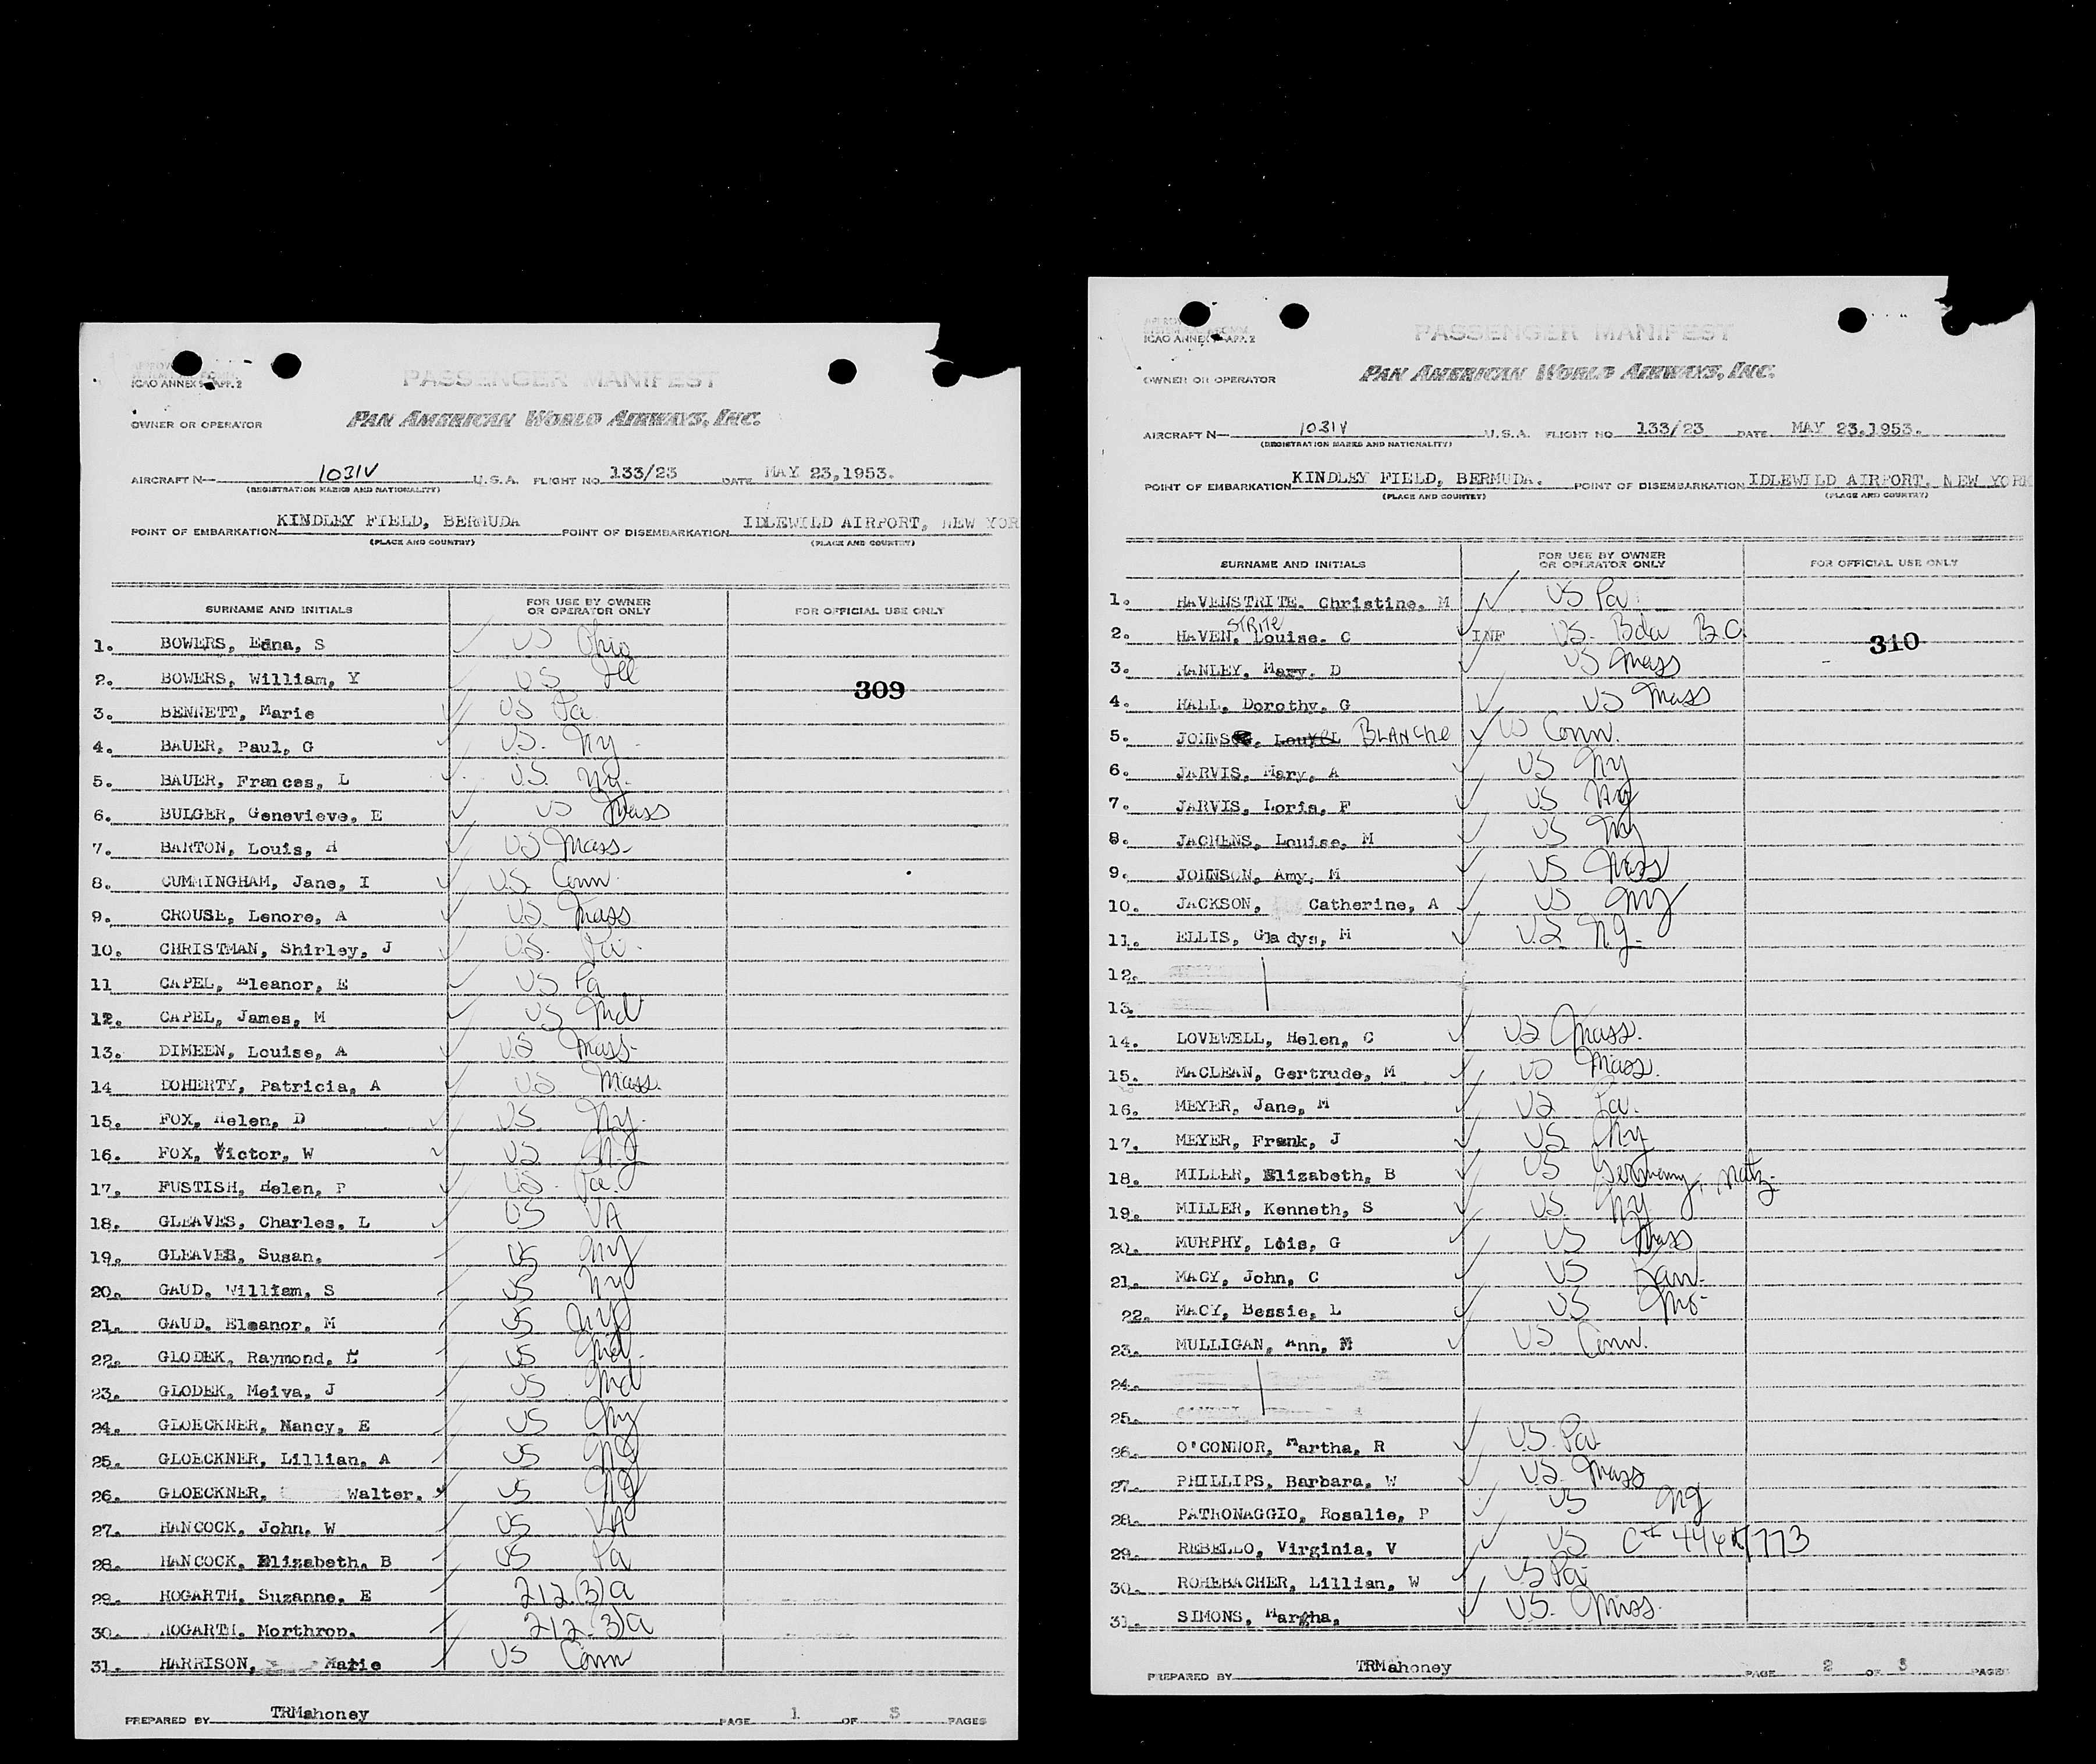 ICAO ANNEX 9-APP. 2
PASSENGER MANIFEST
OWNER OR OPERATOR
PAN AMERICAN WORLD AIRWAYS, INC.
AIRCRAFT N— 1031V U.S.A. FLIGHT NO. 133/23 DATE MAY 23,1953.
(REGISTRATION MARKS AND NATIONALITY)
POINT OF EMBARKATION KINDLEY FIELD, BERMUDA POINT OF DISEMBARKATION IDLEWILD AIRPORT, NEW YOR
(PLACE AND COUNTRY) (PLACE AND COUNTRY)
SURNAME AND INITIALS FOR USE BY OWNER OR OPERATOR ONLY FOR OFFICIAL USE ONLY
1. BOWERS, Edna, S US Ohio
2. BOWERS, William, Y US Ill
309
3. BENNETT, Marie US Pa
4. BAUER, Paul, G US. Ny
5. BAUER, Frances, L US. Ny.
6. BULGER, Genevieve, E US Mass
7. BARTON, Louis, H US Mass.
8. CUMMINGHAM, Jane, I US Conn.
9. CROUSE, Lenore, A US Mass
10. CHRISTMAN, Shirley, J US. Pa.
11 CAPEL, Eleanor, E US Pa
12. CAPEL, James, M US Md
13. DIMEEN, Louise, A US Mass.
14 DOHERTY, Patricia, A US Mass.
15. FOX, Helen, D US Ny.
16. FOX, Victor, W US Ny
17. FUSTISH, Helen, P US. Pa.
18. GLEAVES, Charles, L US VA
19. GLEAVES, Susan, US Ny
20. GAUD, William, S US Ny
21. GAUD, Eleanor, M US Ny
22. GLODEK, Raymond, E US Md.
23. GLODEK, Meiva, J US Md
24. GLOECKNER, Nancy, E US Ny
25. GLOECKNER, Lillian, A US Ny
26. GLOECKNER, Walter, US Ny
27. HANCOCK, John, W US VA
28. HANCOCK, Elizabeth, B US Pa
29. HOGARTH, Suzanne, E 212.(3)a
30. HOGARTH, Morthrop, 212.(3)a
31. HARRISON, Marie US Conn
PREPARED BY TRMahoney PAGE 1 OF 5 PAGES
ICAO ANNEX 9-APP. 2
PASSENGER MANIFEST
OWNER OR OPERATOR
PAN AMERICAN WORLD AIRWAYS, INC.
AIRCRAFT N— 1031V U.S.A. FLIGHT NO. 133/23 DATE MAY 23,1953.
(REGISTRATION MARKS AND NATIONALITY)
POINT OF EMBARKATION KINDLEY FIELD, BERMUDA. POINT OF DISEMBARKATION IDLEWILD AIRPORT, NEW YORK
(PLACE AND COUNTRY) (PLACE AND COUNTRY)
SURNAME AND INITIALS FOR USE BY OWNER OR OPERATOR ONLY FOR OFFICIAL USE ONLY
1. HAVENSTRITE, Christine, M US Pa
2. HAVEN, STRITE Louise, C INF US. Bda B.C.
310
3. HANLEY, Mary, D US Mass
4. HALL, Dorothy, G US Mass
5. JOHNS, BLANCHE US Conn.
6. JARVIS, Mary, A US Ny
7. JARVIS, Loris, F US Ny
8. JACHENS, Louise, M US Ny
9. JOHNSON, Amy, M US Mass
10. JACKSON, Catherine, A US Ny
11. ELLIS, Gladys, M U.S N.J.
12.
13.
14. LOVEWELL, Helen, C US Mass.
15. MACLEAN, Gertrude, M US Mass.
16. MEYER, Jane, M US Pa.
17. MEYER, Frank, J US Ny
18. MILLER, Elizabeth, B US Germany, Natz.
19. MILLER, Kenneth, S US. Ny
20. MURPHY, Lois, G US Mass
21. MACY, John, C US Kan.
22. MACY, Bessie, L US Mo.
23. MULLIGAN, Ann, M US Conn.
24.
25.
26. O'CONNOR, Martha, R U.S. Pa
27. PHILLIPS, Barbara, W US. Mass
28. PATRONAGGIO, Rosalie, P US Ny
29. REBELLO, Virginia, V US C#
30. ROHRBACHER, Lillian, W US Pa
31. SIMONS, Martha, U.S. Miss.
PREPARED BY TRMahoney PAGE 2 OF 5 PAGES